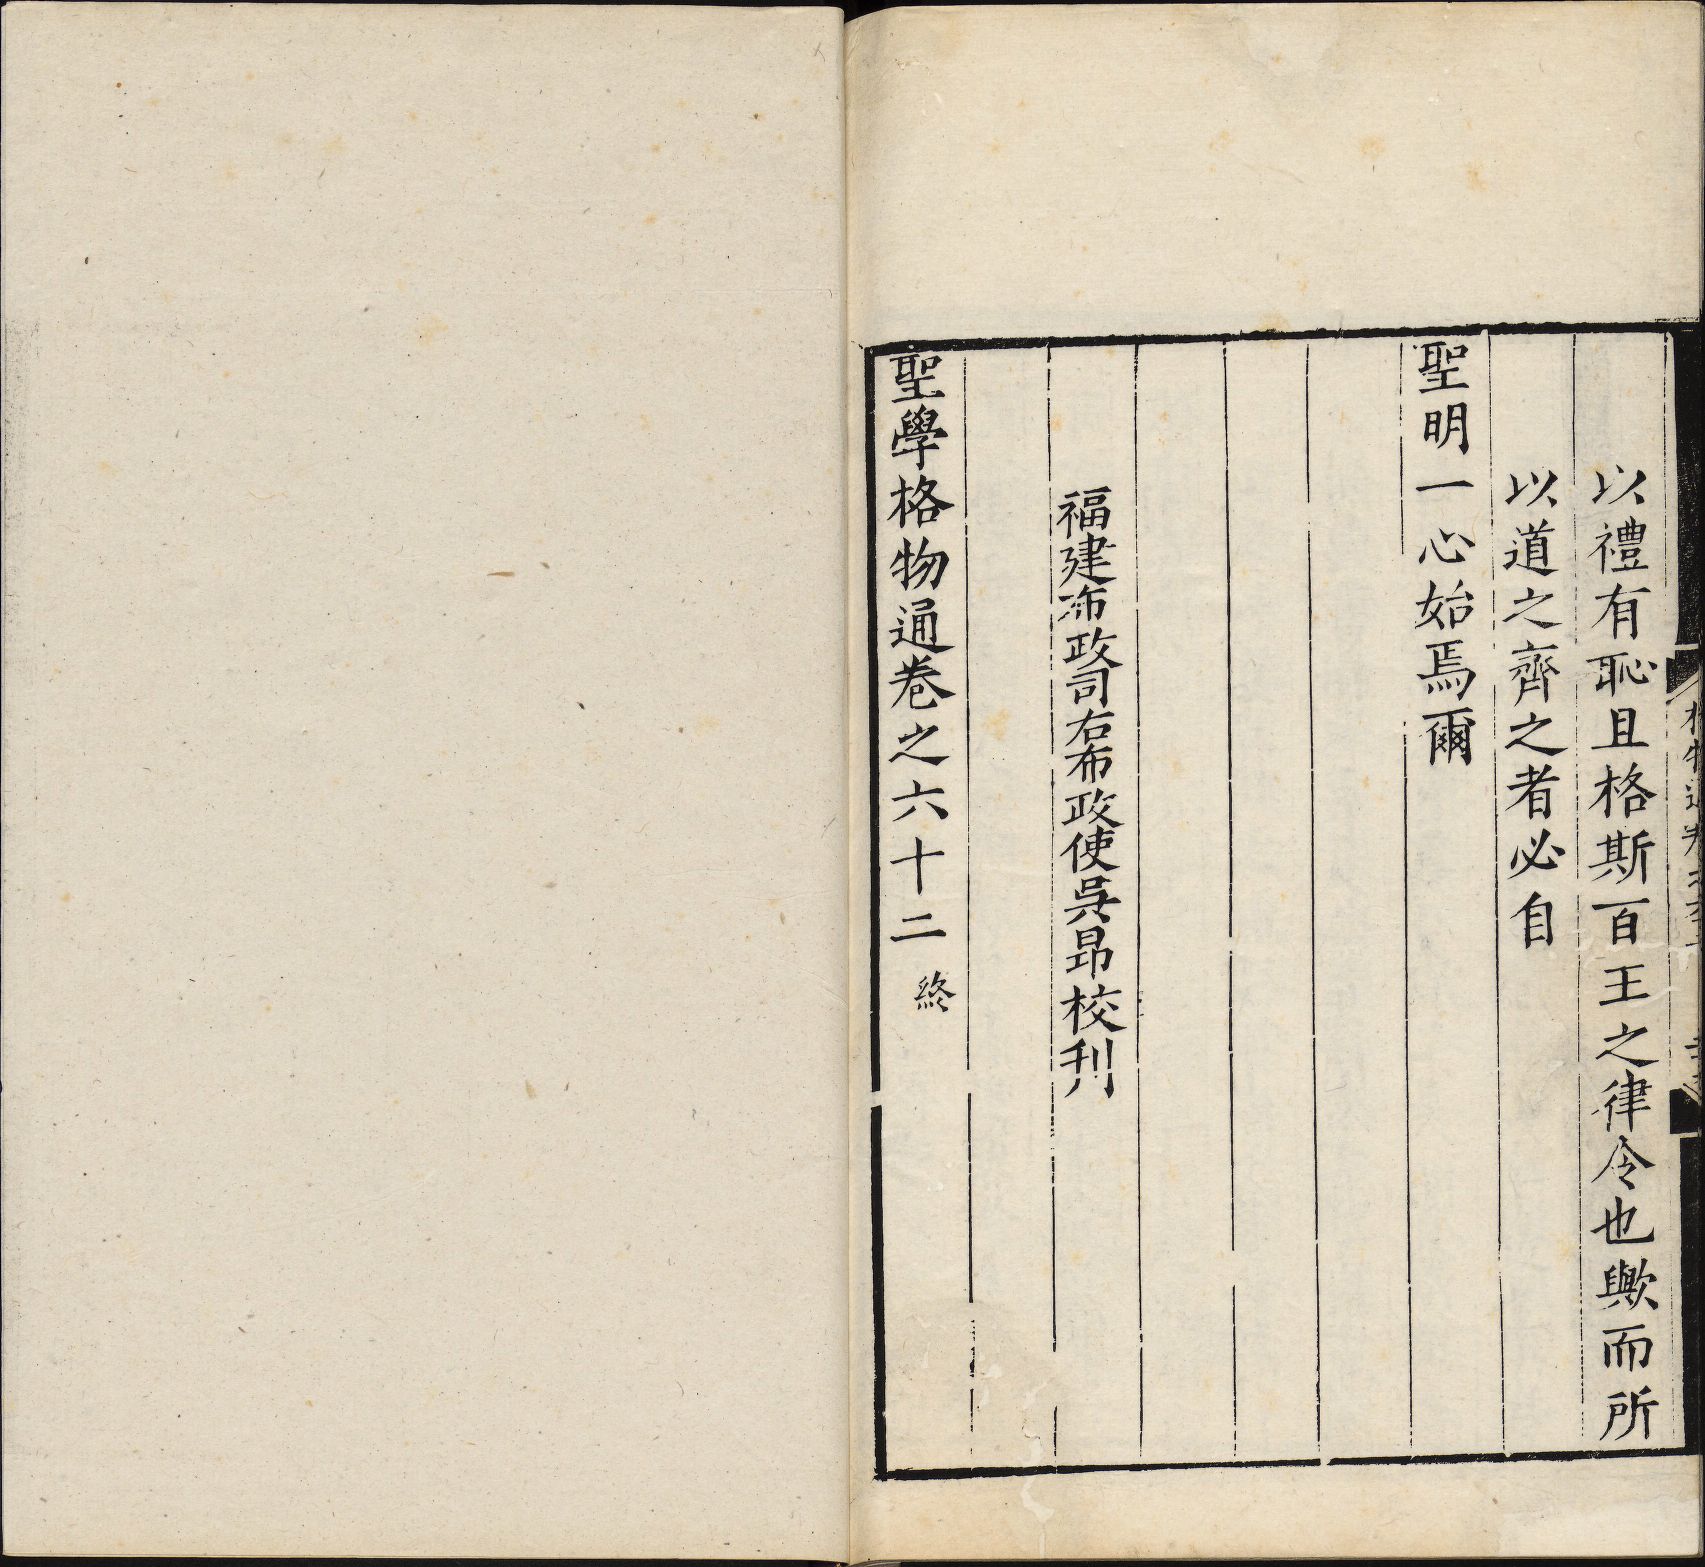 以禮有恥且格斯百王之律令也歟而所
以道之齊之者必自
聖明一心始焉爾
福建布政司右布政使吳昻校刋
聖學格物通卷之六十二 終